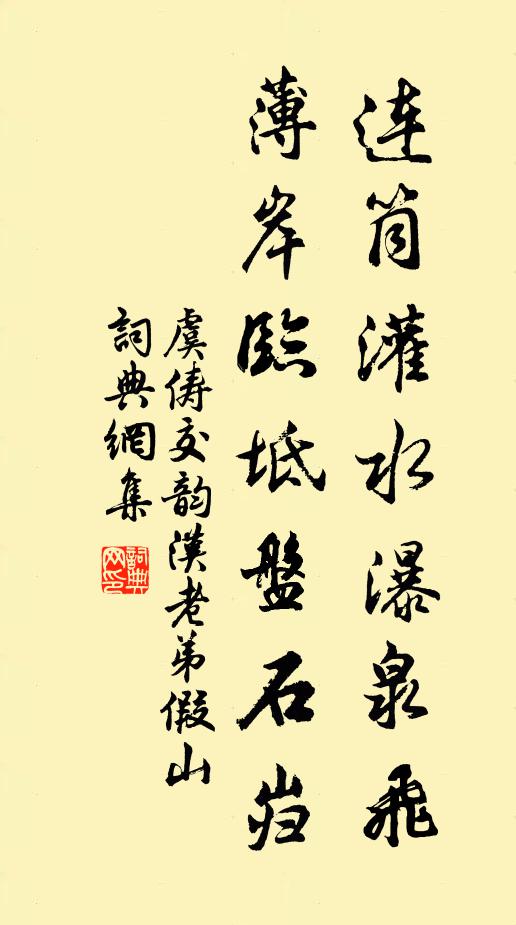 連筒灌水瀑泉飛
薄岸臨坻盤石岿
虞儔次韵漢老弟假山
詞典網集
詞典网印